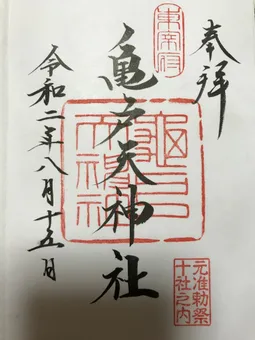 奉拝
東宰府
亀戸天神社
令和二年八月十五日
元准勅祭
十社之内